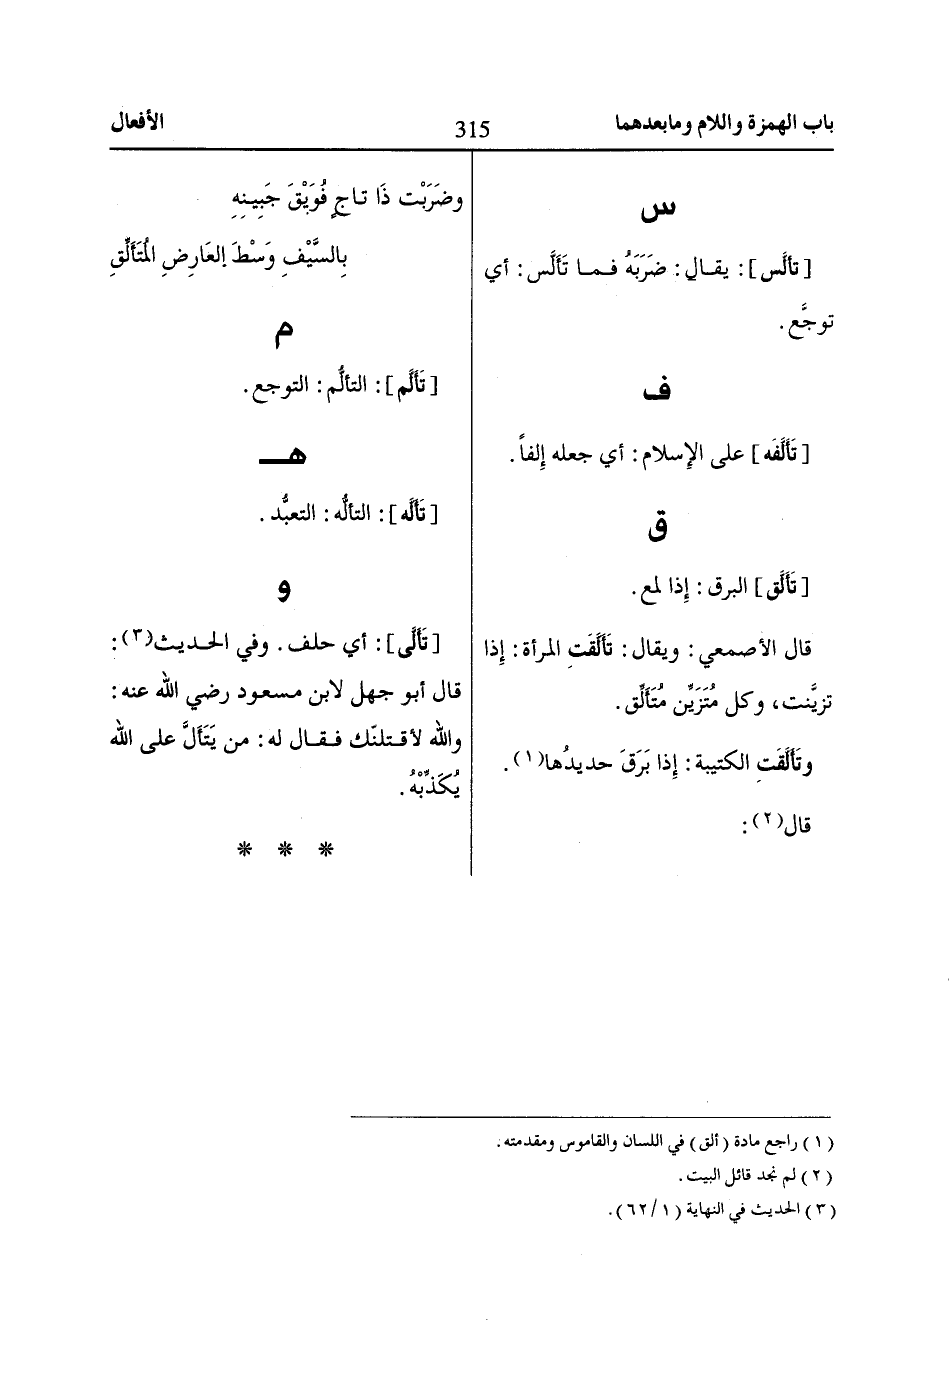 باب الهمزة واللام ومابعدهما
315
الأفعال
س
[تألَّس]: يقـال: ضَرَبَهُ فـمـا تَأَلَّس: أي
توجَّع.
ف
[تَأَلَّفَه] على الإسلام: أي جعله إلفاً.
ق
[تَأَلَّق] البرق: إذا لمع.
قال الأصمعي: ويقال: تَأَلَّقَتِ المرأة: إذا
تزيَّنت، وكل مُتَزَيِّن مُتَأَلِّق.
وتَأَلَّقَتِ الكتيبة: إذا بَرَقَ حديدُها(١).
قال(٢):
وضَرَبْت ذَا تـاجٍ فُوَيْقَ جَبِيـنِهِ
بِالسَّيْفِ وَسْطَ العَارِضِ المُتَأَلِّقِ
م
[تَأَلَّم]: التألُّم: التوجع.
هـ
[تَأَلَّه]: التألُّه: التعبُّد.
و
[تَأَلَّى]: أي حلف. وفي الحـديث(٣):
قال أبو جهل لابن مسعود رضي الله عنه:
والله لأقـتلنّك فـقـال له: من يَتَأَلَّ على الله
يُكَذِّبْهُ.
* * *
(١) راجع مادة (ألق) في اللسان والقاموس ومقدمته.
(٢) لم نجد قائل البيت.
(٣) الحديث في النهاية (١/٦٢).